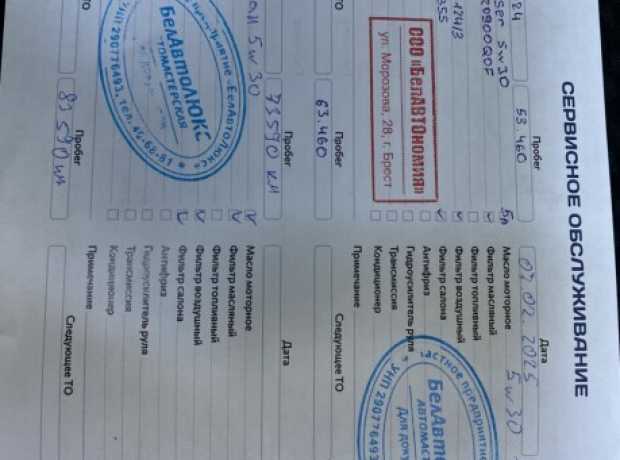 СЕРВИСНОЕ ОБСЛУЖИВАНИЕ
24
Пробег
53.460
Дата
02.02.2025
5w30
5w30
20900Q0F
5л
Масло моторное
Фильтр масляный
Фильтр топливный
124/3
Фильтр воздушный
355
Фильтр салона
Антифриз
Гидроусилитель руля
Трансмиссия
Кондиционер
Примечание
ООО «БелАВТОномия»
ул. Морозова, 28, г. Брест
ТО
63.460
Следующее ТО
Частное предприятие
УНП 290776493
БелАвт
АВТОМАСТ
Для док
Пробег
73590 км
Дата
5w30
Масло моторное
Фильтр масляный
Фильтр топливный
Фильтр воздушный
Фильтр салона
Антифриз
Гидроусилитель руля
Трансмиссия
Кондиционер
Примечание
предприятие «БелАвтоЛюкс»
БелАвтоЛЮКС
ТОМАСТЕРСКАЯ
УНП 290776493, тел.
ТО
Пробег
83590 км
Следующее ТО